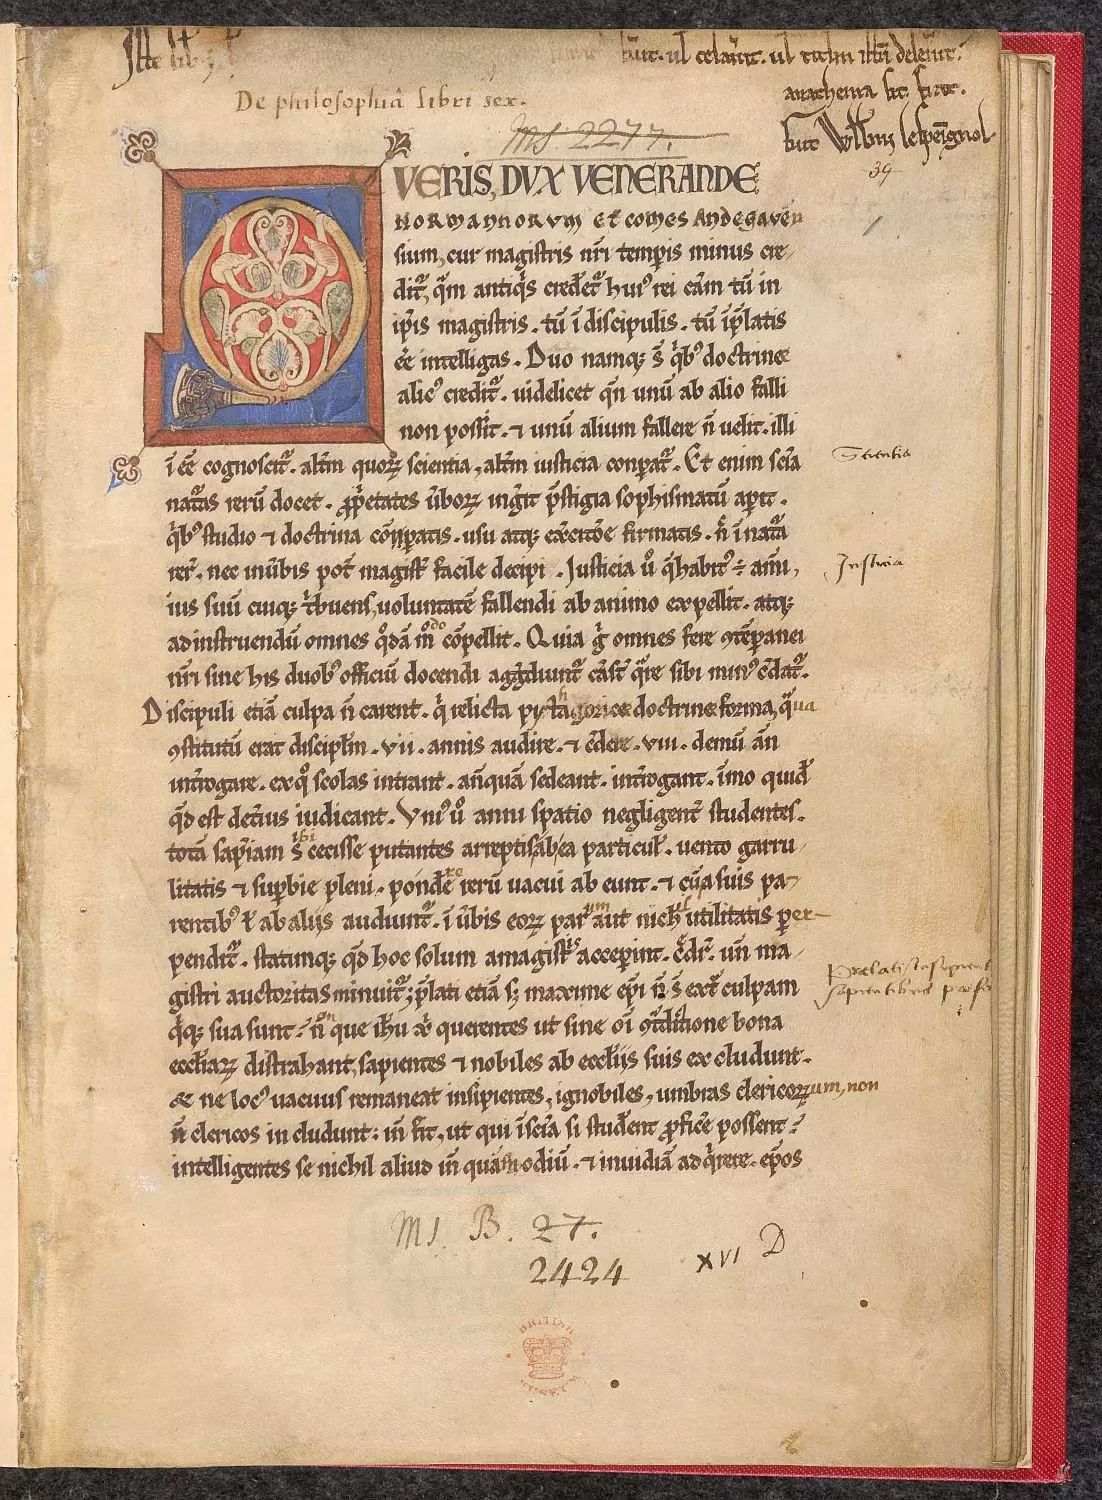 Iste lib
furat͛. uł celau͛it. uł titłm istū deleu͛it.
De philosophia libri sex.
anathema sit. fiat.
MS 2277.
fuit Willm̄i
39
QVERIS, DVX VENERANDE
NORMANNORVM ET COMES ANDEGAVEN
sium, cur magistris nr̄i temp̲is minus cre
dit᷑, q̄m antiq̇s credet᷑. hui᷒ rei cām tū in
ip̄is magistris. tū ī discipulis. tū ī p̄latis
ēē intelligas. Duo namq; s̄ q̇b᷒ doctrine
alic᷒ credit᷑. uidelicet qn̄ unū ab alio falli
non posse. ⁊ unū alium fallere n̄ uelit. illi
ī ēē cognoscit᷑. alt͛m quoꝝ scientia, alt͛m iusticia conparat᷑. Et enim sciā
Scientia
nat᷑as rerū docet. ꝓp̄etates ūboꝝ ing͛it p̄stigia sophismatū ap̲it.
q̇b᷒ studio ⁊ doctrina cōparatis. usu atq; ex͛citōe firmatis. n̄ ī nat᷑a
rer̄. nec inūbis pot̄ magist͛ facile decipi. Iusticia u̐ q̄ habit᷒ ÷ animi,
Justicia
ius suū cuiq; t͛buens, uoluntatē fallendi ab animo expellit. atq;
ad instruendū omnes q̊dā m̊do cōpellit. Quia g̊ omnes fere ꝯtēp̲anei
nr̄i sine his duob᷒ officiū docendi aggrediunt᷑ cā est q̄re sibi min᷒ c͛dat᷑.
Discipuli etiā culpa n̄ carent. q̇ relicta pythagorice doctrine forma, qua
ꝯstitutū erat discip̄lm. vii. annis audire. ⁊ c͛dere. viii. demū an̄
int͛rogare. ex q̊ scolas intrant. anq̄uā sedeant. int͛rogant. īmo quid̄
qd̄ est det͛ius iudicant. Vni᷒ u̐ anni spatio negligent͛ studentes.
totā sap̄iam s̄ ibi cecisse putantes arreptis ab ea particul̄. uento garru
litatis ⁊ sup̲bie pleni. pond͛e rerū uacui abeunt. ⁊ cū a suis pa
rentib᷒ ł ab aliis audiunt᷑. ī ūbis eoꝝ parum aut nichil utilitatis per
pendit᷑. statimq; qd̄ hoc solum a magistris accep̲int. c͛dit᷑. un̄ ma
gistri auctoritas minuit᷑; p̄lati etiā s; maxime ep̄i n̄ s̄ extra culpam
q̇q; sua sunt n̄ que ih̄u xp̄i querentes ut sine oī ꝯt͛dictione bona
eccłiaꝝ distrahant, sapientes ⁊ nobiles ab eccłiis suis excludunt.
& ne loc᷒ uacuus remaneat insipientes, ignobiles, umbras clericorum, non
n̄ clericos includunt: in̄ fit, ut qui ī sciā si stud͛ent ꝓfic͛e possent:
intelligentes se nichil aliud in̄ quā odiū. ⁊ inuidiā adq̇rere. ep̄os
MS. B. 27.
2424
XVI D
BRITISH